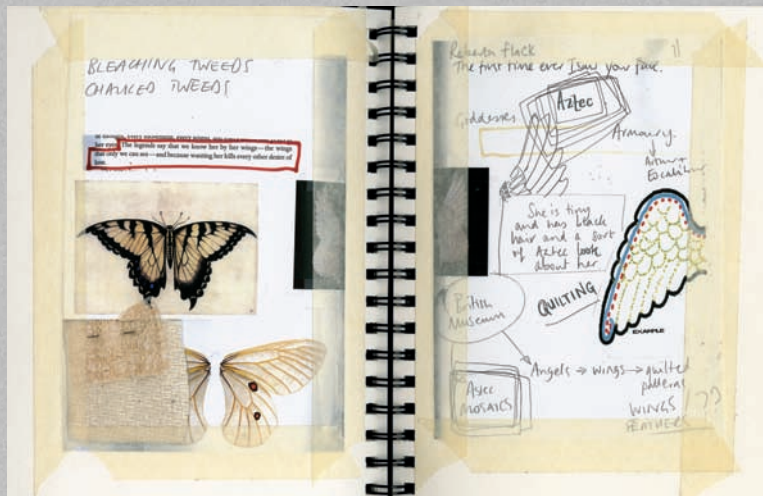 BLEACHING TWEEDS
CHALKED TWEEDS
her eyes. The legends say that we know her by her wings—the wings
that only we can see—and because wanting her kills every other desire of
love.
Roberta flack
The first time ever I saw your face.
Aztec
Goddesses
Armoury
Arthur +
Excalibur
She is tiny
and has black
hair and a sort
of Aztec look
about her
QUILTING
British
Museum
EXAMPLE
Angels → wings → quilted
patterns
Aztec
MOSAICS
WINGS
FEATHERS